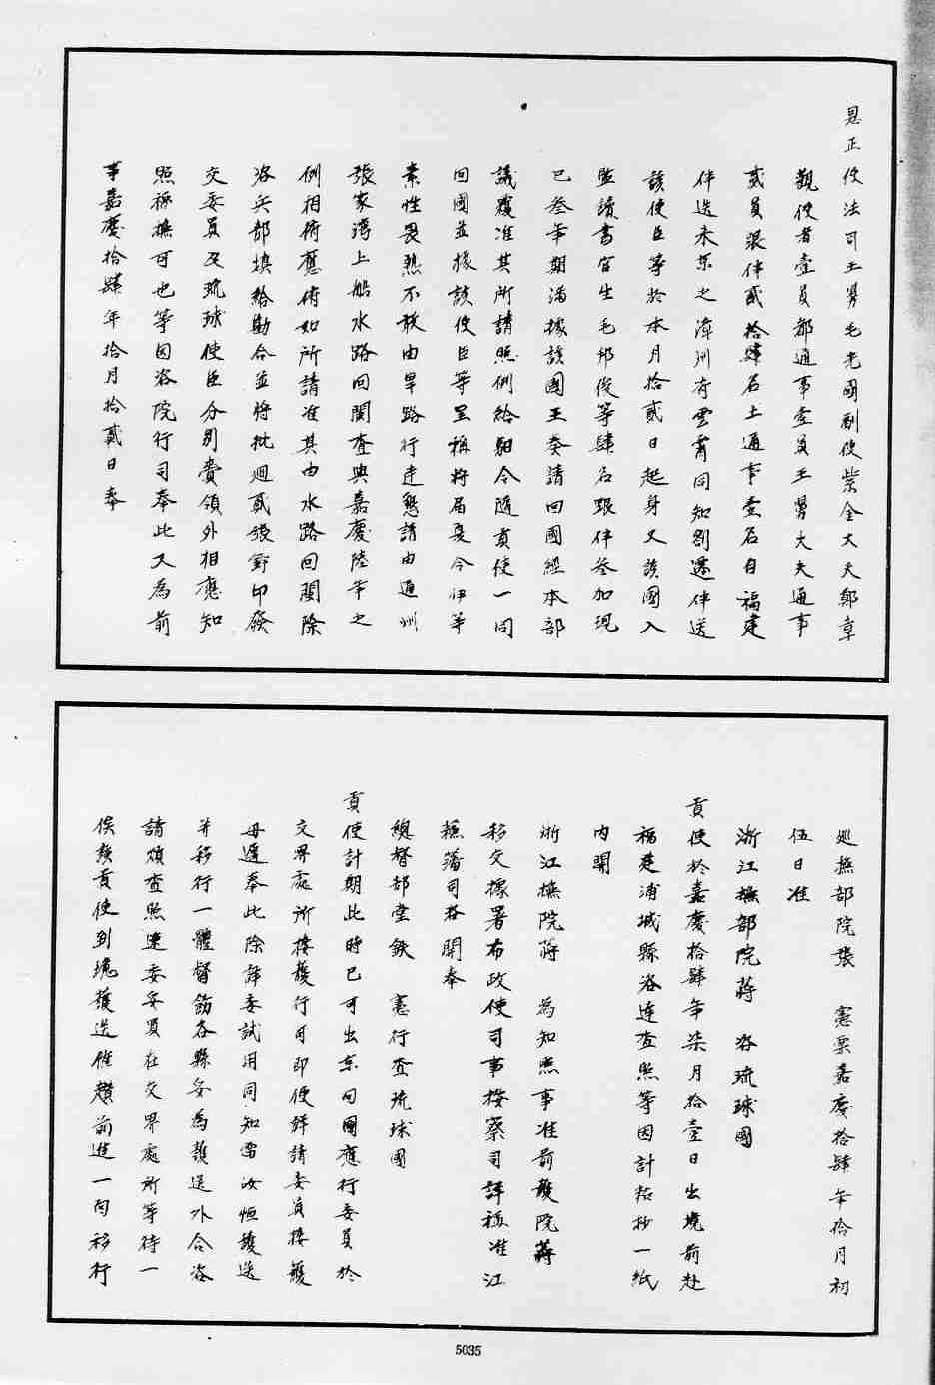 恩正使法司王舅毛光國副使紫金大夫鄭章
觀使者壹員都通事壹員王舅大夫通事
貳員跟伴貳拾肆名土通事壹名自福建
伴送來京之漳州府雲霄同知劉遷伴送
該使臣等於本月拾貳日起身又該國入
監讀書官生毛邦俊等肆名跟伴叁加現
已叁年期滿據該國王奏請回國經本部
議覆准其所請照例給馳令隨貢使一同
回國並據該使臣等呈稱將屆夏令伊等
素性畏熱不敢由旱路行走懇請由通州
張家灣上船水路回閩查與嘉慶陸年之
例相符應俯如所請准其由水路回閩除
咨兵部填給勘合並將批迴貳張鈐印發
交委員及琉球使臣分別賫領外相應知
照福撫可也等因咨院行司奉此又為前
事嘉慶拾肆年拾月拾貳日奉
巡撫部院張 憲票嘉慶拾肆年拾月初
伍日准
浙江撫部院蔣 咨琉球國
貢使於嘉慶拾肆年柒月拾壹日出境前赴
福建浦城縣咨達查照等因計粘抄一紙
內開
浙江撫院蔣 為知照事准前護院蔣
移交據署布政使司事按察司詳稱准江
蘇藩司咨開奉
總督部堂鐵 憲行查琉球國
貢使計期此時已可出京回國應行委員於
交界處所接護行司即便詳請委員接護
毋遲奉此除詳委試用同知雷汝恒護送
并移行一體督飭各縣妥為護送外合咨
請煩查照速委妥員在交界處所等待一
俟該貢使到境護送催趲前進一面移行
5035